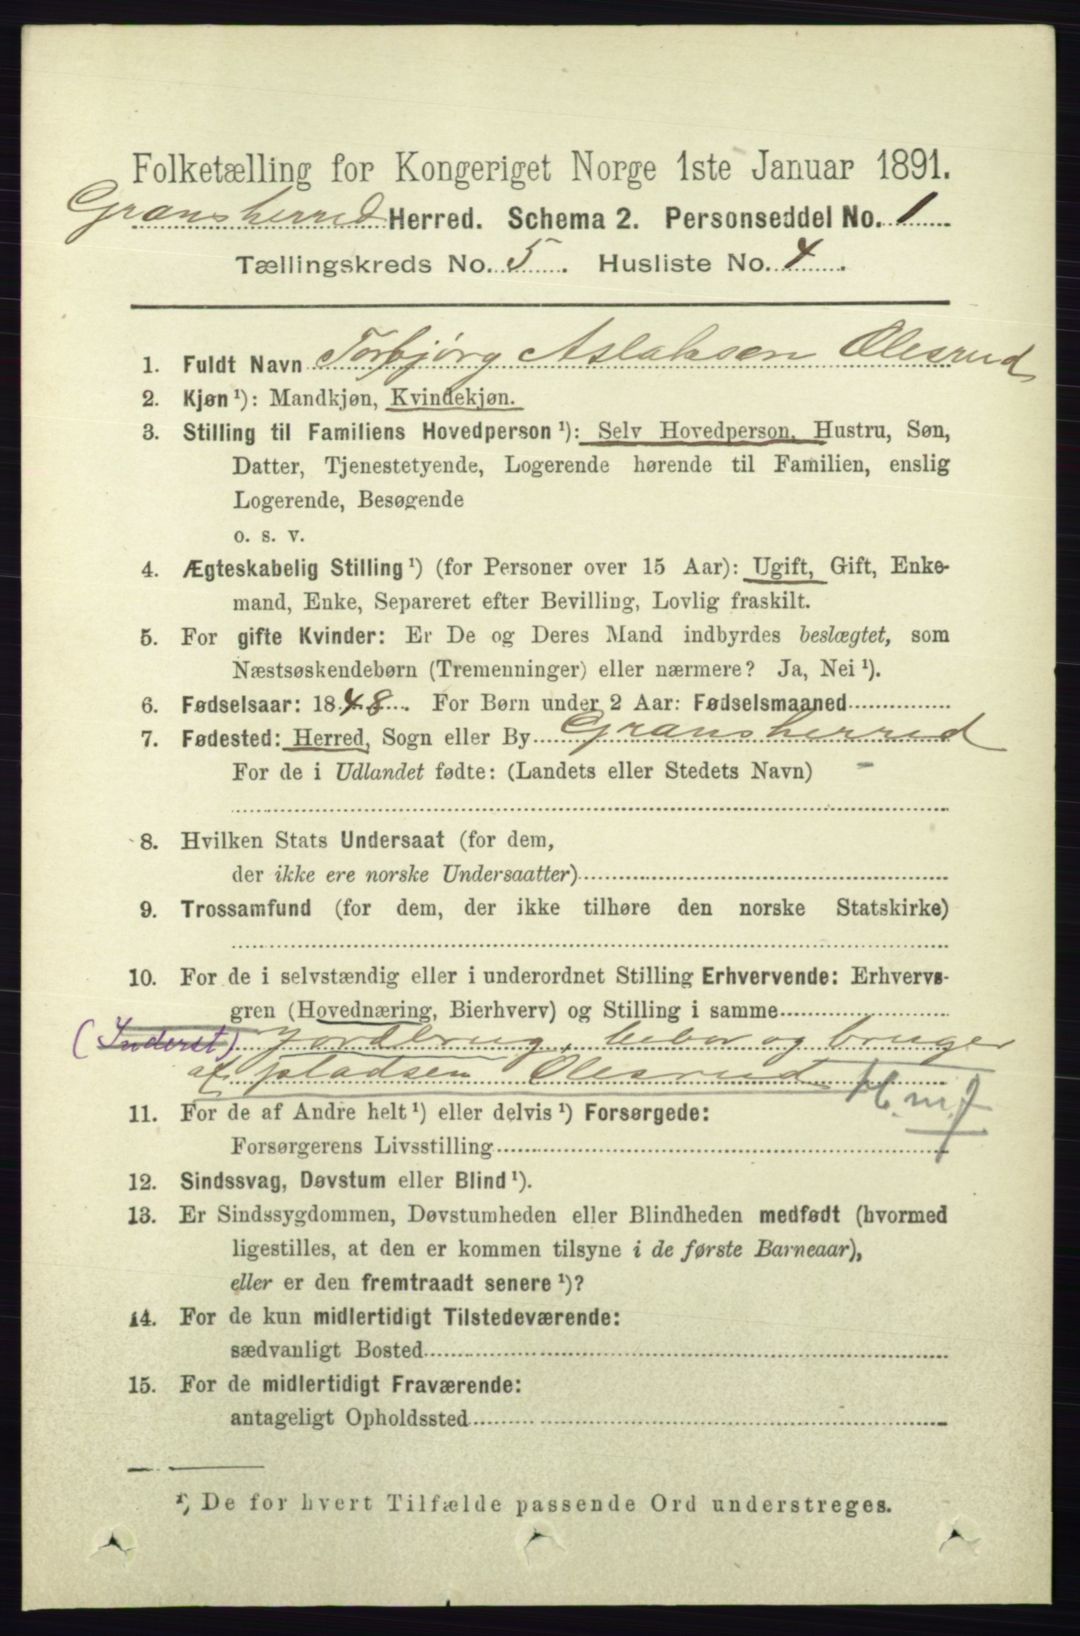 Folketælling for Kongeriget Norge 1ste Januar 1891.
Gransherred Herred. Schema 2. Personseddel No. 1
Tællingskreds No. 5. Husliste No. 4.
1. Fuldt Navn Torbjørg Aslaksen Ølesrud
2. Kjøn ¹): Mandkjøn, Kvindekjøn.
3. Stilling til Familiens Hovedperson ¹): Selv Hovedperson, Hustru, Søn,
Datter, Tjenestetyende, Logerende hørende til Familien, enslig
Logerende, Besøgende
o. s. v.
4. Ægteskabelig Stilling ¹) (for Personer over 15 Aar): Ugift, Gift, Enke-
mand, Enke, Separeret efter Bevilling, Lovlig fraskilt.
5. For gifte Kvinder: Er De og Deres Mand indbyrdes beslægtet, som
Næstsøskendebørn (Tremenninger) eller nærmere? Ja, Nei ¹).
6. Fødselsaar: 1848. For Børn under 2 Aar: Fødselsmaaned
7. Fødested: Herred, Sogn eller By Gransherred
For de i Udlandet fødte: (Landets eller Stedets Navn)
8. Hvilken Stats Undersaat (for dem,
der ikke ere norske Undersaatter)
9. Trossamfund (for dem, der ikke tilhøre den norske Statskirke)
10. For de i selvstændig eller i underordnet Stilling Erhvervende: Erhvervs-
gren (Hovednæring, Bierhverv) og Stilling i samme
(Inderst) Jordbrug, bebor og bruger
af pladsen Ølesrud H.m.J
11. For de af Andre helt ¹) eller delvis ¹) Forsørgede:
Forsørgerens Livsstilling
12. Sindssvag, Døvstum eller Blind ¹).
13. Er Sindssygdommen, Døvstumheden eller Blindheden medfødt (hvormed
ligestilles, at den er kommen tilsyne i de første Barneaar),
eller er den fremtraadt senere ¹)?
14. For de kun midlertidigt Tilstedeværende:
sædvanligt Bosted
15. For de midlertidigt Fraværende:
antageligt Opholdssted
¹) De for hvert Tilfælde passende Ord understreges.